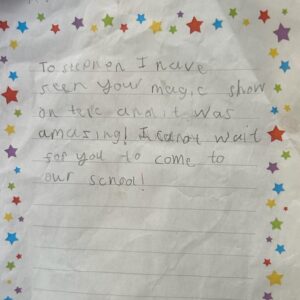 To stephon I have
seen your magic show
on telc and it was
amazing! I canot wait
for you to come to
our school!